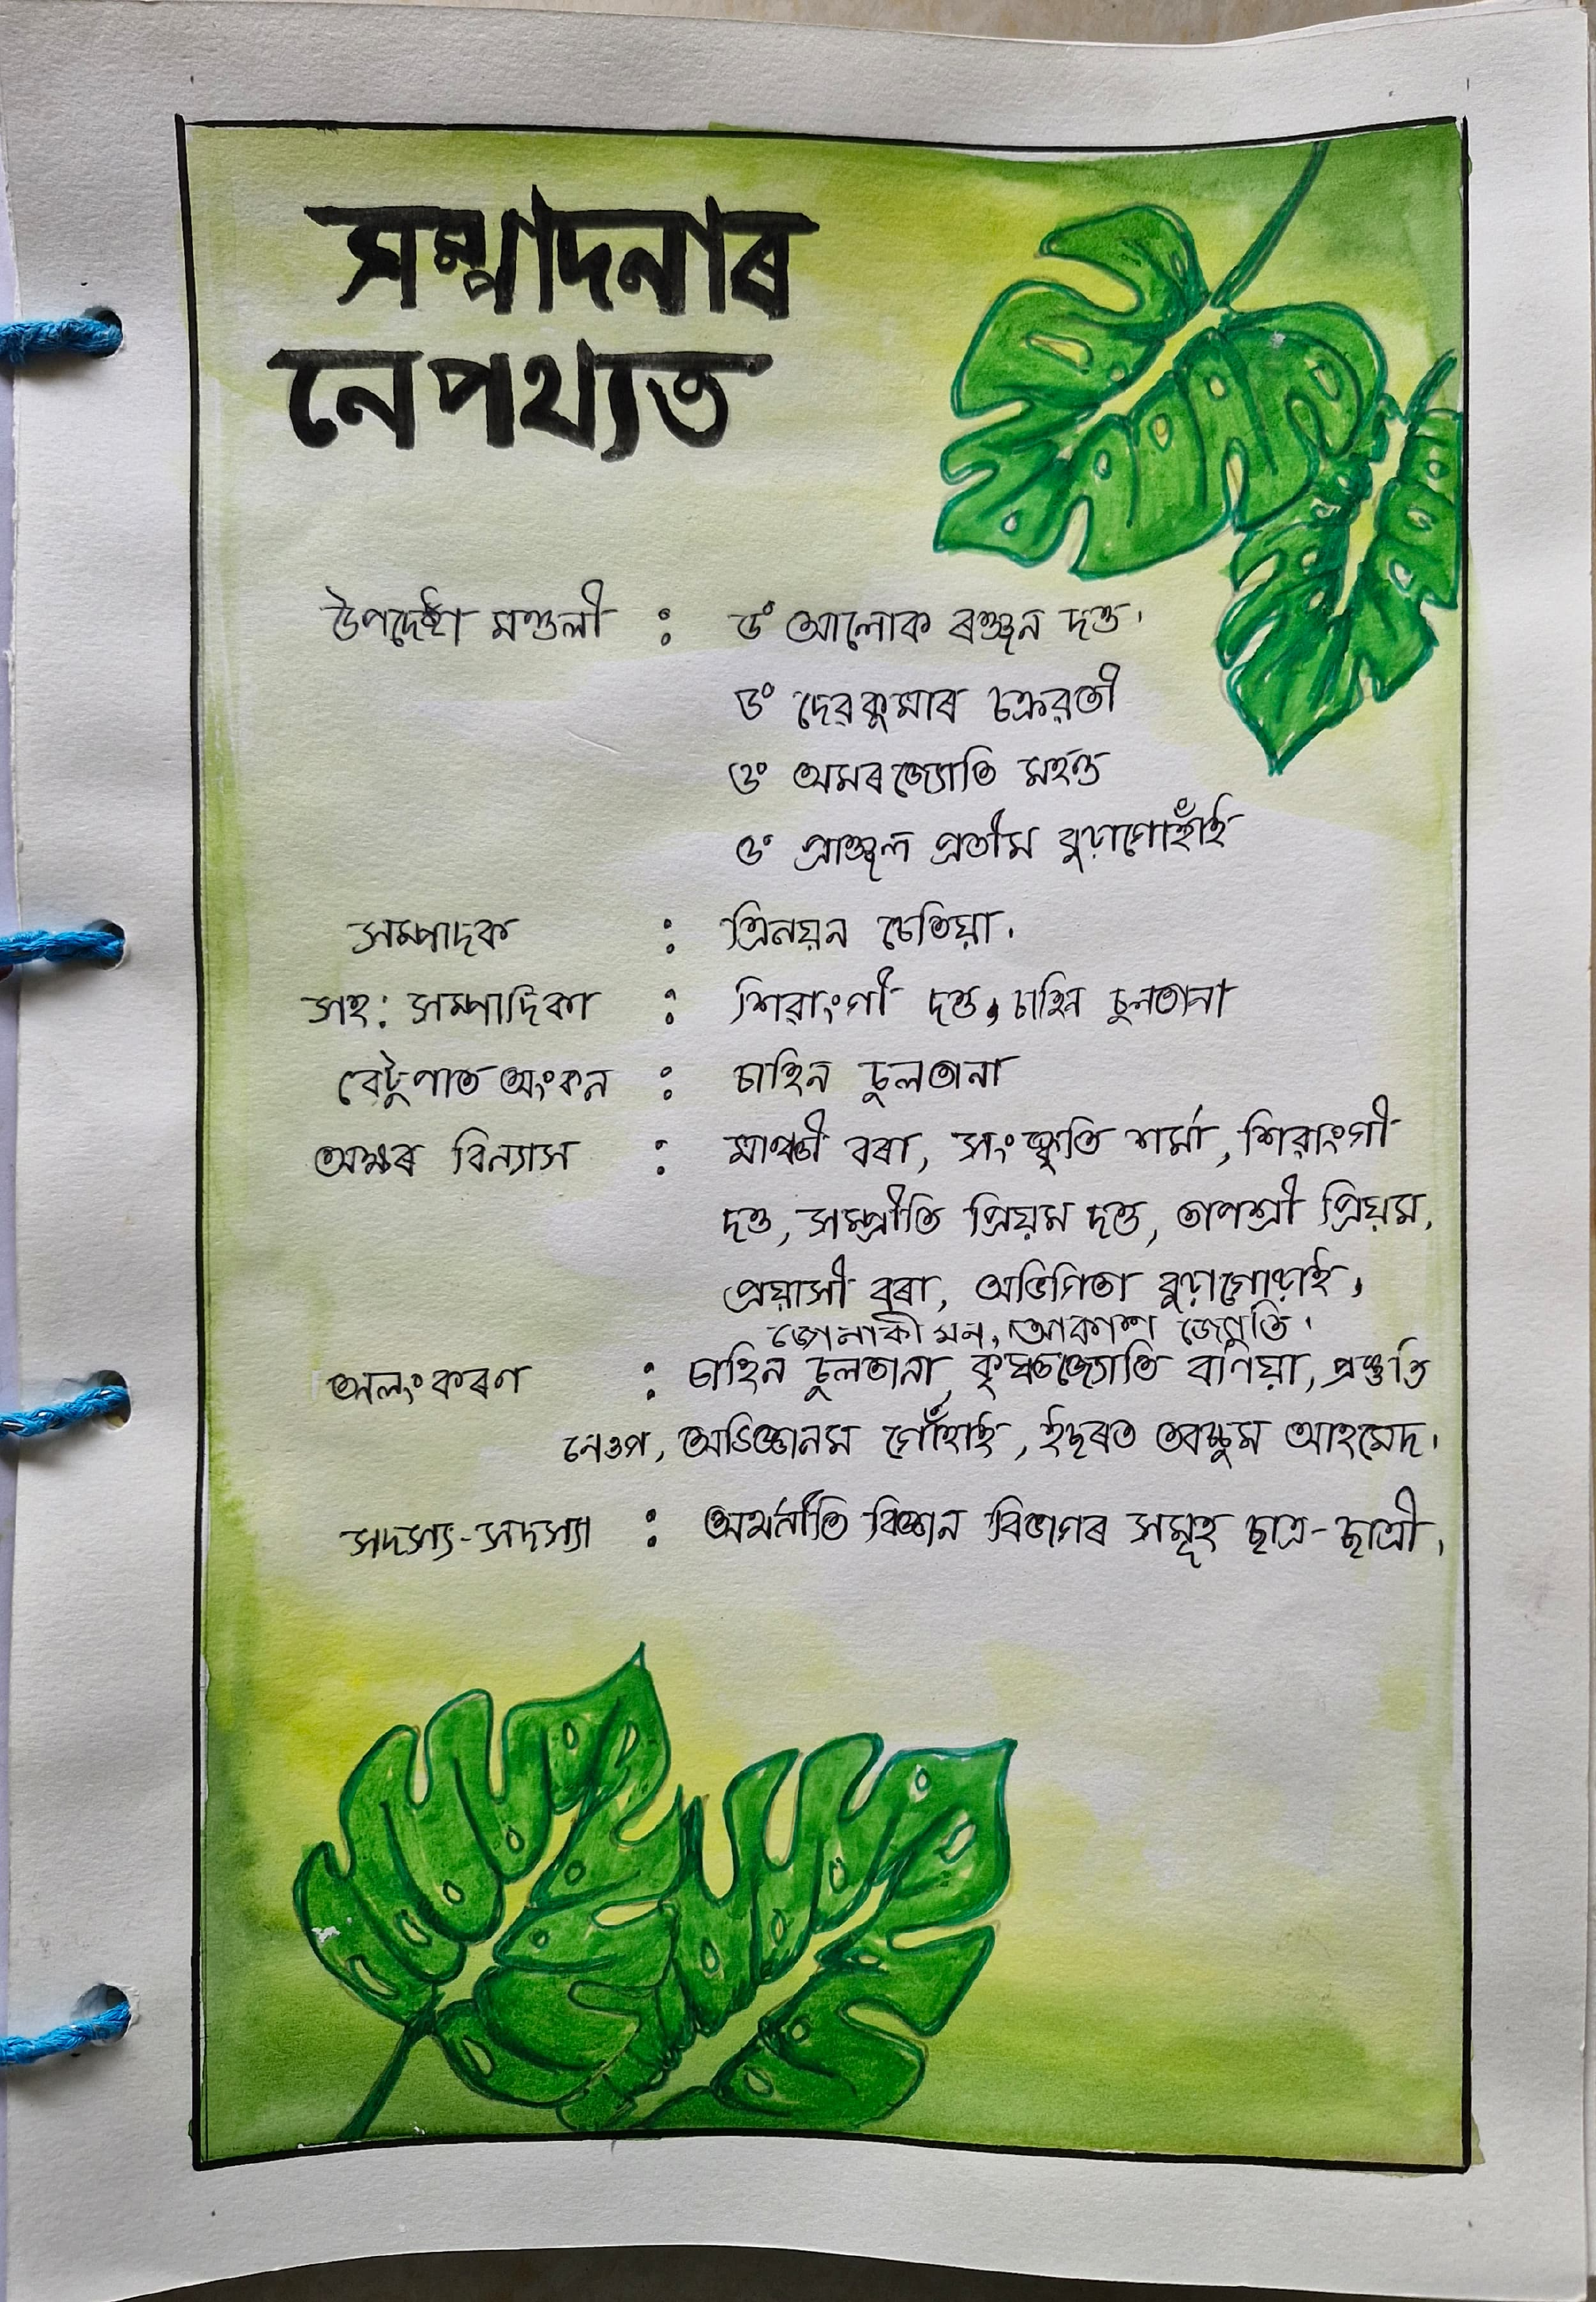 সম্পাদনাৰ
নেপথ্যত
উপদেষ্টা মণ্ডলী : ড° আলোক ৰঞ্জন দত্ত।
ড° দেৱকুমাৰ চক্ৰৱৰ্তী
ড° অমৰজ্যোতি মহন্ত
ড° প্ৰাঞ্জল প্ৰতীম বুঢ়াগোহাঁই
সম্পাদক : ত্ৰিনয়ন চেতিয়া।
সহ: সম্পাদিকা : শিৱাংগী দত্ত, চাহিন চুলতানা
বেটুপাত অংকন : চাহিন চুলতানা
অক্ষৰ বিন্যাস : বৰা, সংস্কৃতি শৰ্মা, শিৱাংগী
দত্ত, সম্প্ৰীতি প্ৰিয়ম দত্ত, তাপশ্ৰী প্ৰিয়ম,
প্ৰয়াসী বৰা,
জোনাকী মন, আকাশ জেমুতি।
অলংকৰণ : চাহিন চুলতানা, কৃষ্ণজ্যোতি বণিয়া, প্ৰস্তুতি
নেওগ, অভিজ্ঞানম গোঁহাই, ইছৰত তবচ্ছুম আহমেদ।
সদস্য-সদস্যা : অৰ্থনীতি বিজ্ঞান বিভাগৰ সমূহ ছাত্ৰ-ছাত্ৰী।